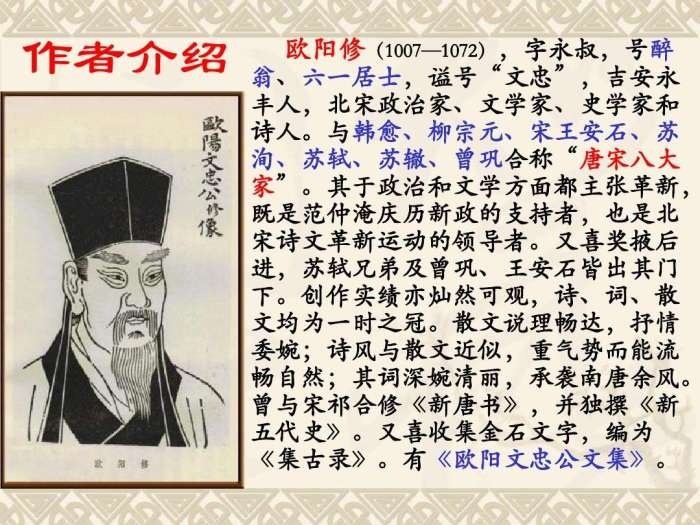 作者介绍
欧阳修（1007—1072），字永叔，号醉
翁、六一居士，谥号“文忠”，吉安永
丰人，北宋政治家、文学家、史学家和
诗人。与韩愈、柳宗元、宋王安石、苏
洵、苏轼、苏辙、曾巩合称“唐宋八大
家”。其于政治和文学方面都主张革新，
既是范仲淹庆历新政的支持者，也是北
宋诗文革新运动的领导者。又喜奖掖后
进，苏轼兄弟及曾巩、王安石皆出其门
下。创作实绩亦灿然可观，诗、词、散
文均为一时之冠。散文说理畅达，抒情
委婉；诗风与散文近似，重气势而能流
畅自然；其词深婉清丽，承袭南唐余风。
曾与宋祁合修《新唐书》，并独撰《新
五代史》。又喜收集金石文字，编为
《集古录》。有《欧阳文忠公文集》。
歐陽文忠公修像
欧阳修